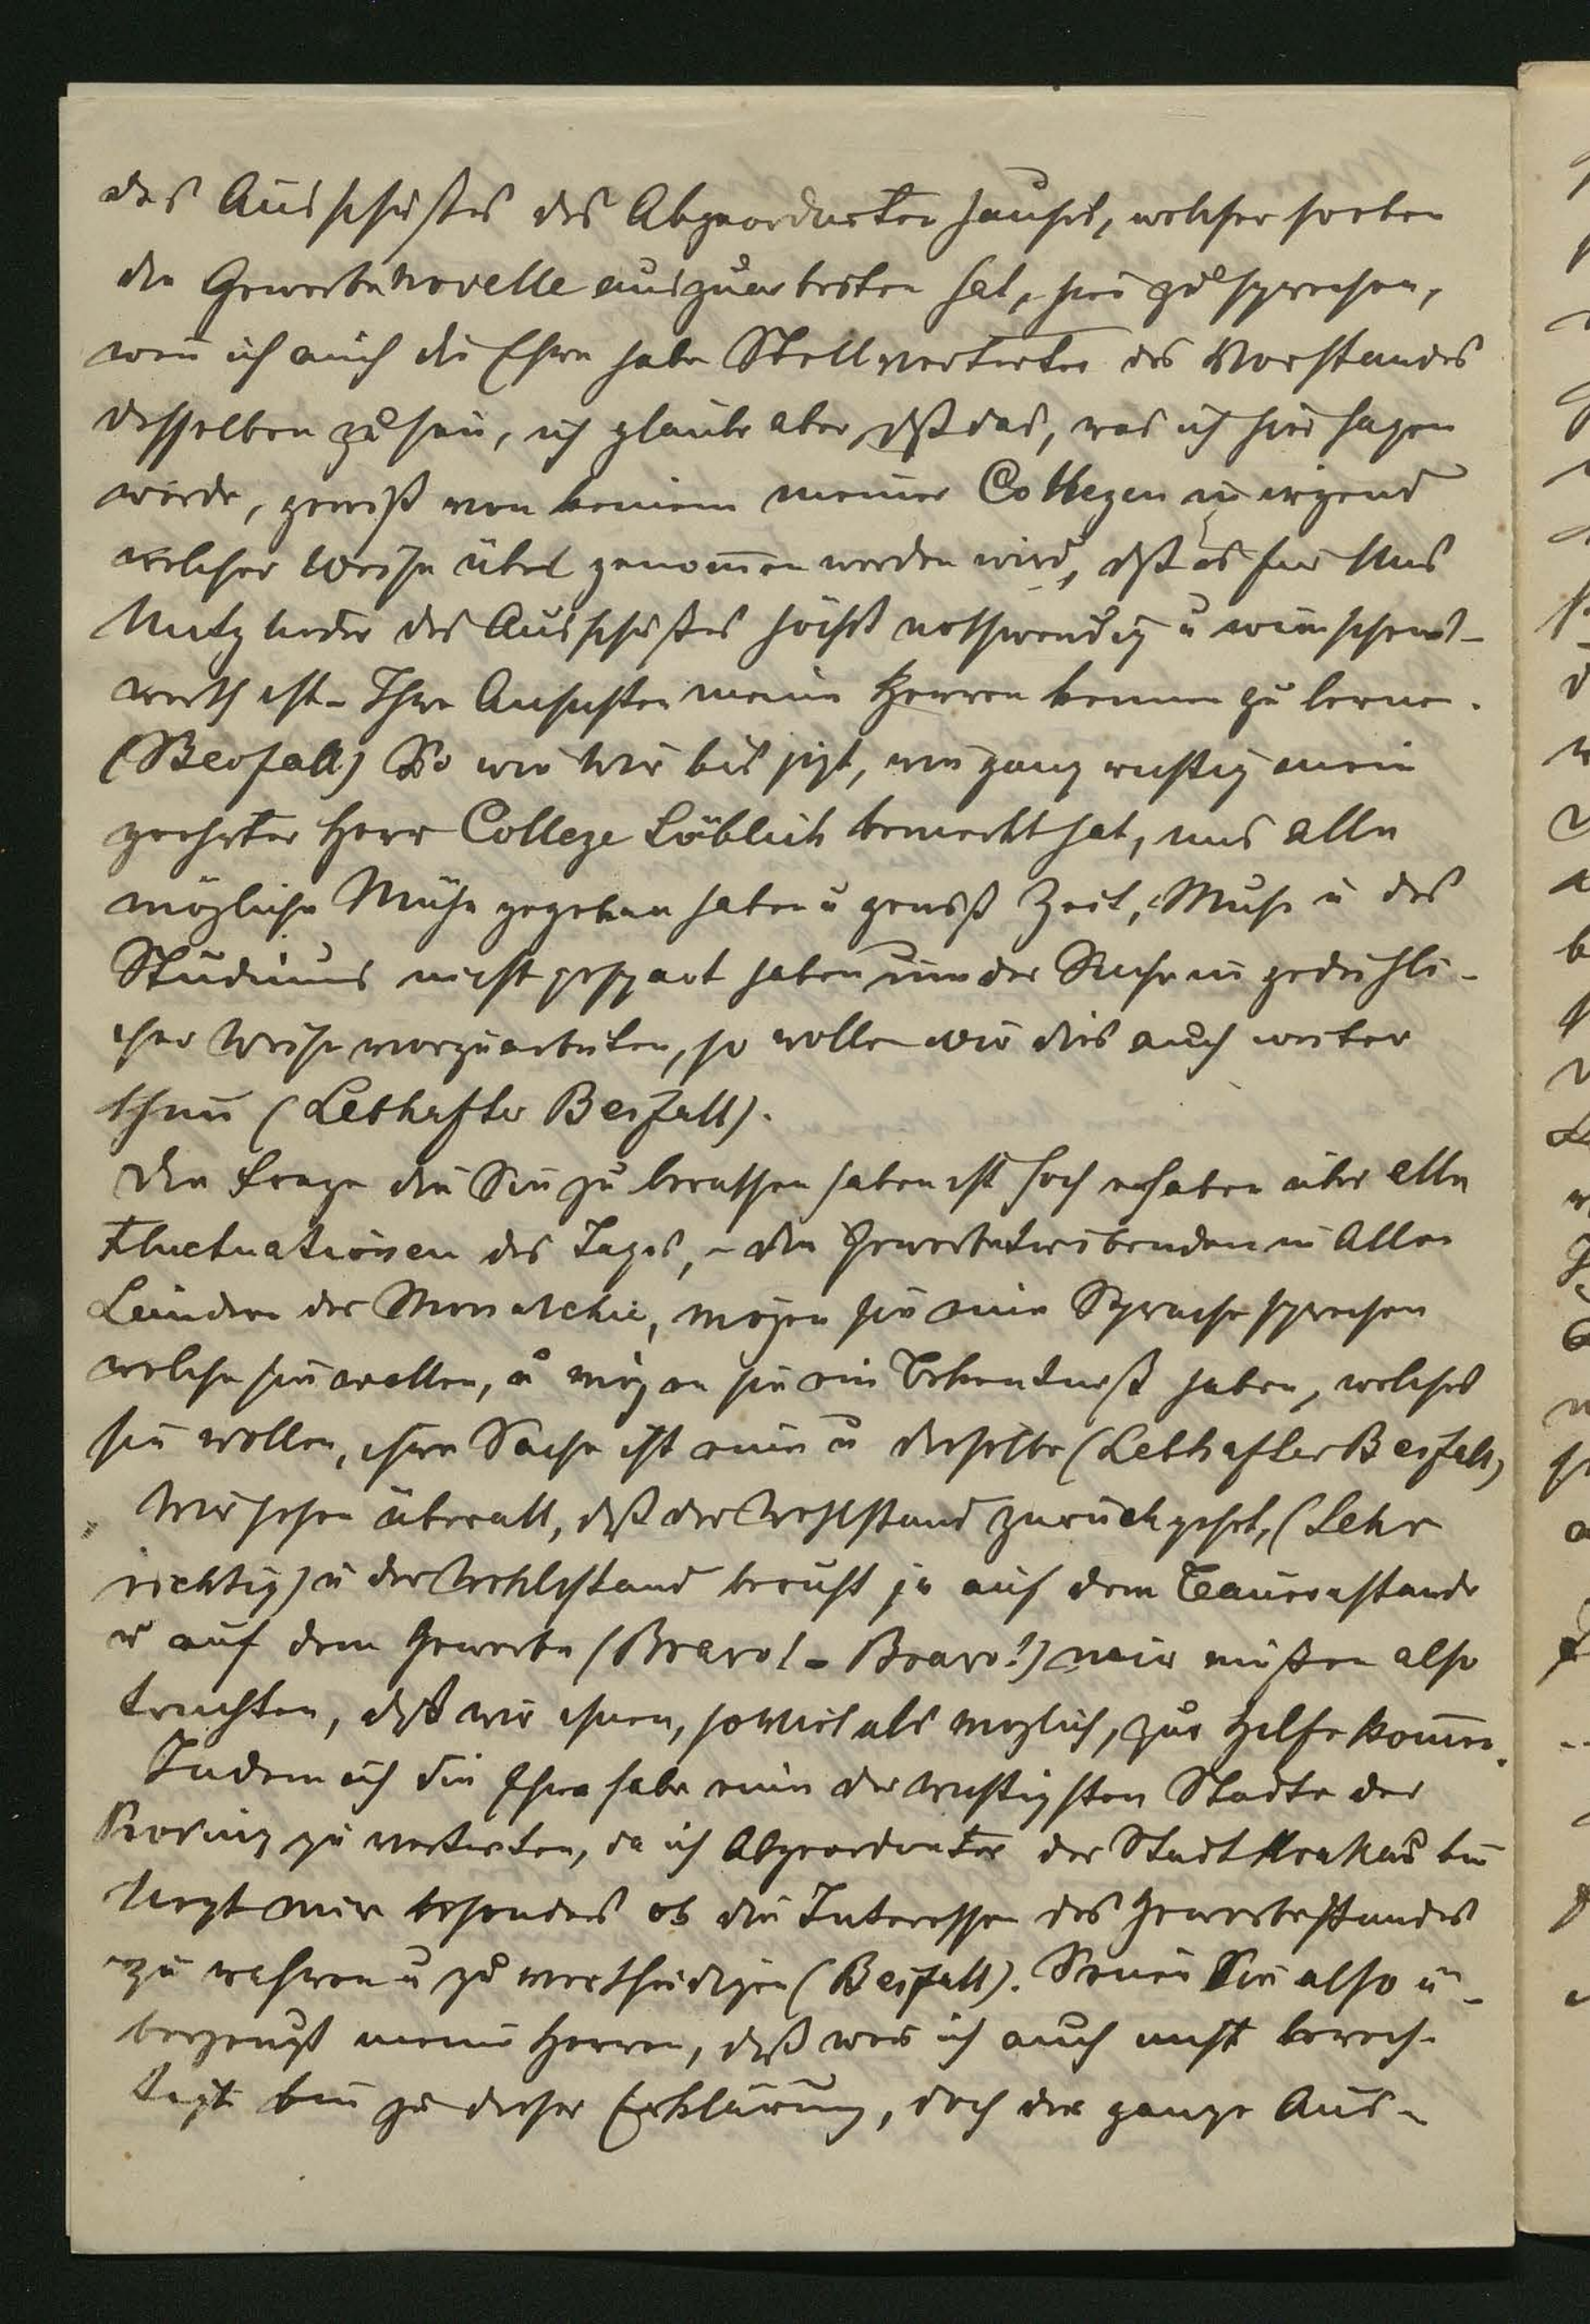 des Ausschußes des Abgeordneten hauses, welcher soeben
die Gewerbenovelle auszuarbeiten hat, hier zu sprechen,
wen̄ ich auch die Ehre habe Stellvertreter des Vorstandes
desselben zu sein, ich glaube aber, dß das, was ich hier sagen
werde, gewiß von keinem meiner Collegen in irgend
welcher Weise übel genom̄en werden wird, dß es für Uns
Mitglieder des Ausschußes höchst nothwendig u wünschens-
werth ist - Ihre Ansichten meine Herren kennen zu lernen.
(Beifall) So wie wir bis jezt, wie ganz richtig mein
geehrter Herr College Löblich bemerkt hat, uns alle
mögliche Mühe gegeben haben u gewiß Zeit, Muße u des
Studiums nicht gespart haben um der Sache in gedeihli-
cher Weise vorzuarbeiten, so wollen wir dies auch weiter
thun (Lebhafter Beifall).
Die Frage die Sie zu berathen haben ist hoch erhaben über alle
Fluctuationen des Tages, - die Gewerbetreibenden in Allen
Ländern der Monarchie, mögen sie eine Sprache sprechen
welche sie wollen, u mögen sie ein Bekentniß haben, welches
sie wollen, ihre Sache ist eine u dieselbe (Lebhafter Beifall)
Wir sehen überall, daß der Wohlstand zurückgeht, (Sehr
richtig) u der Wohlstand beruht ja auf dem Bauernstande
u auf dem Gewerbe (Bravo! - Bravo!) wir müßen also
trachten, dß wir ihnen, soviel als möglich, zur Hilfe kom̄en.
Indem ich die Ehre habe eine der wichtigsten Städte der
Provinz zu vertreten, da ich Abgeordneter der Stadt Krakau bin
liegt mir besonders ob die Interessen des Gewerbestandes
zu wahren u zu vertheidigen (Beifall). Seien Sie also ü-
berzeugt meine Herren, daß wen ich auch nicht berech-
tigt bin zu dieser Erklärung, doch der ganze Aus-